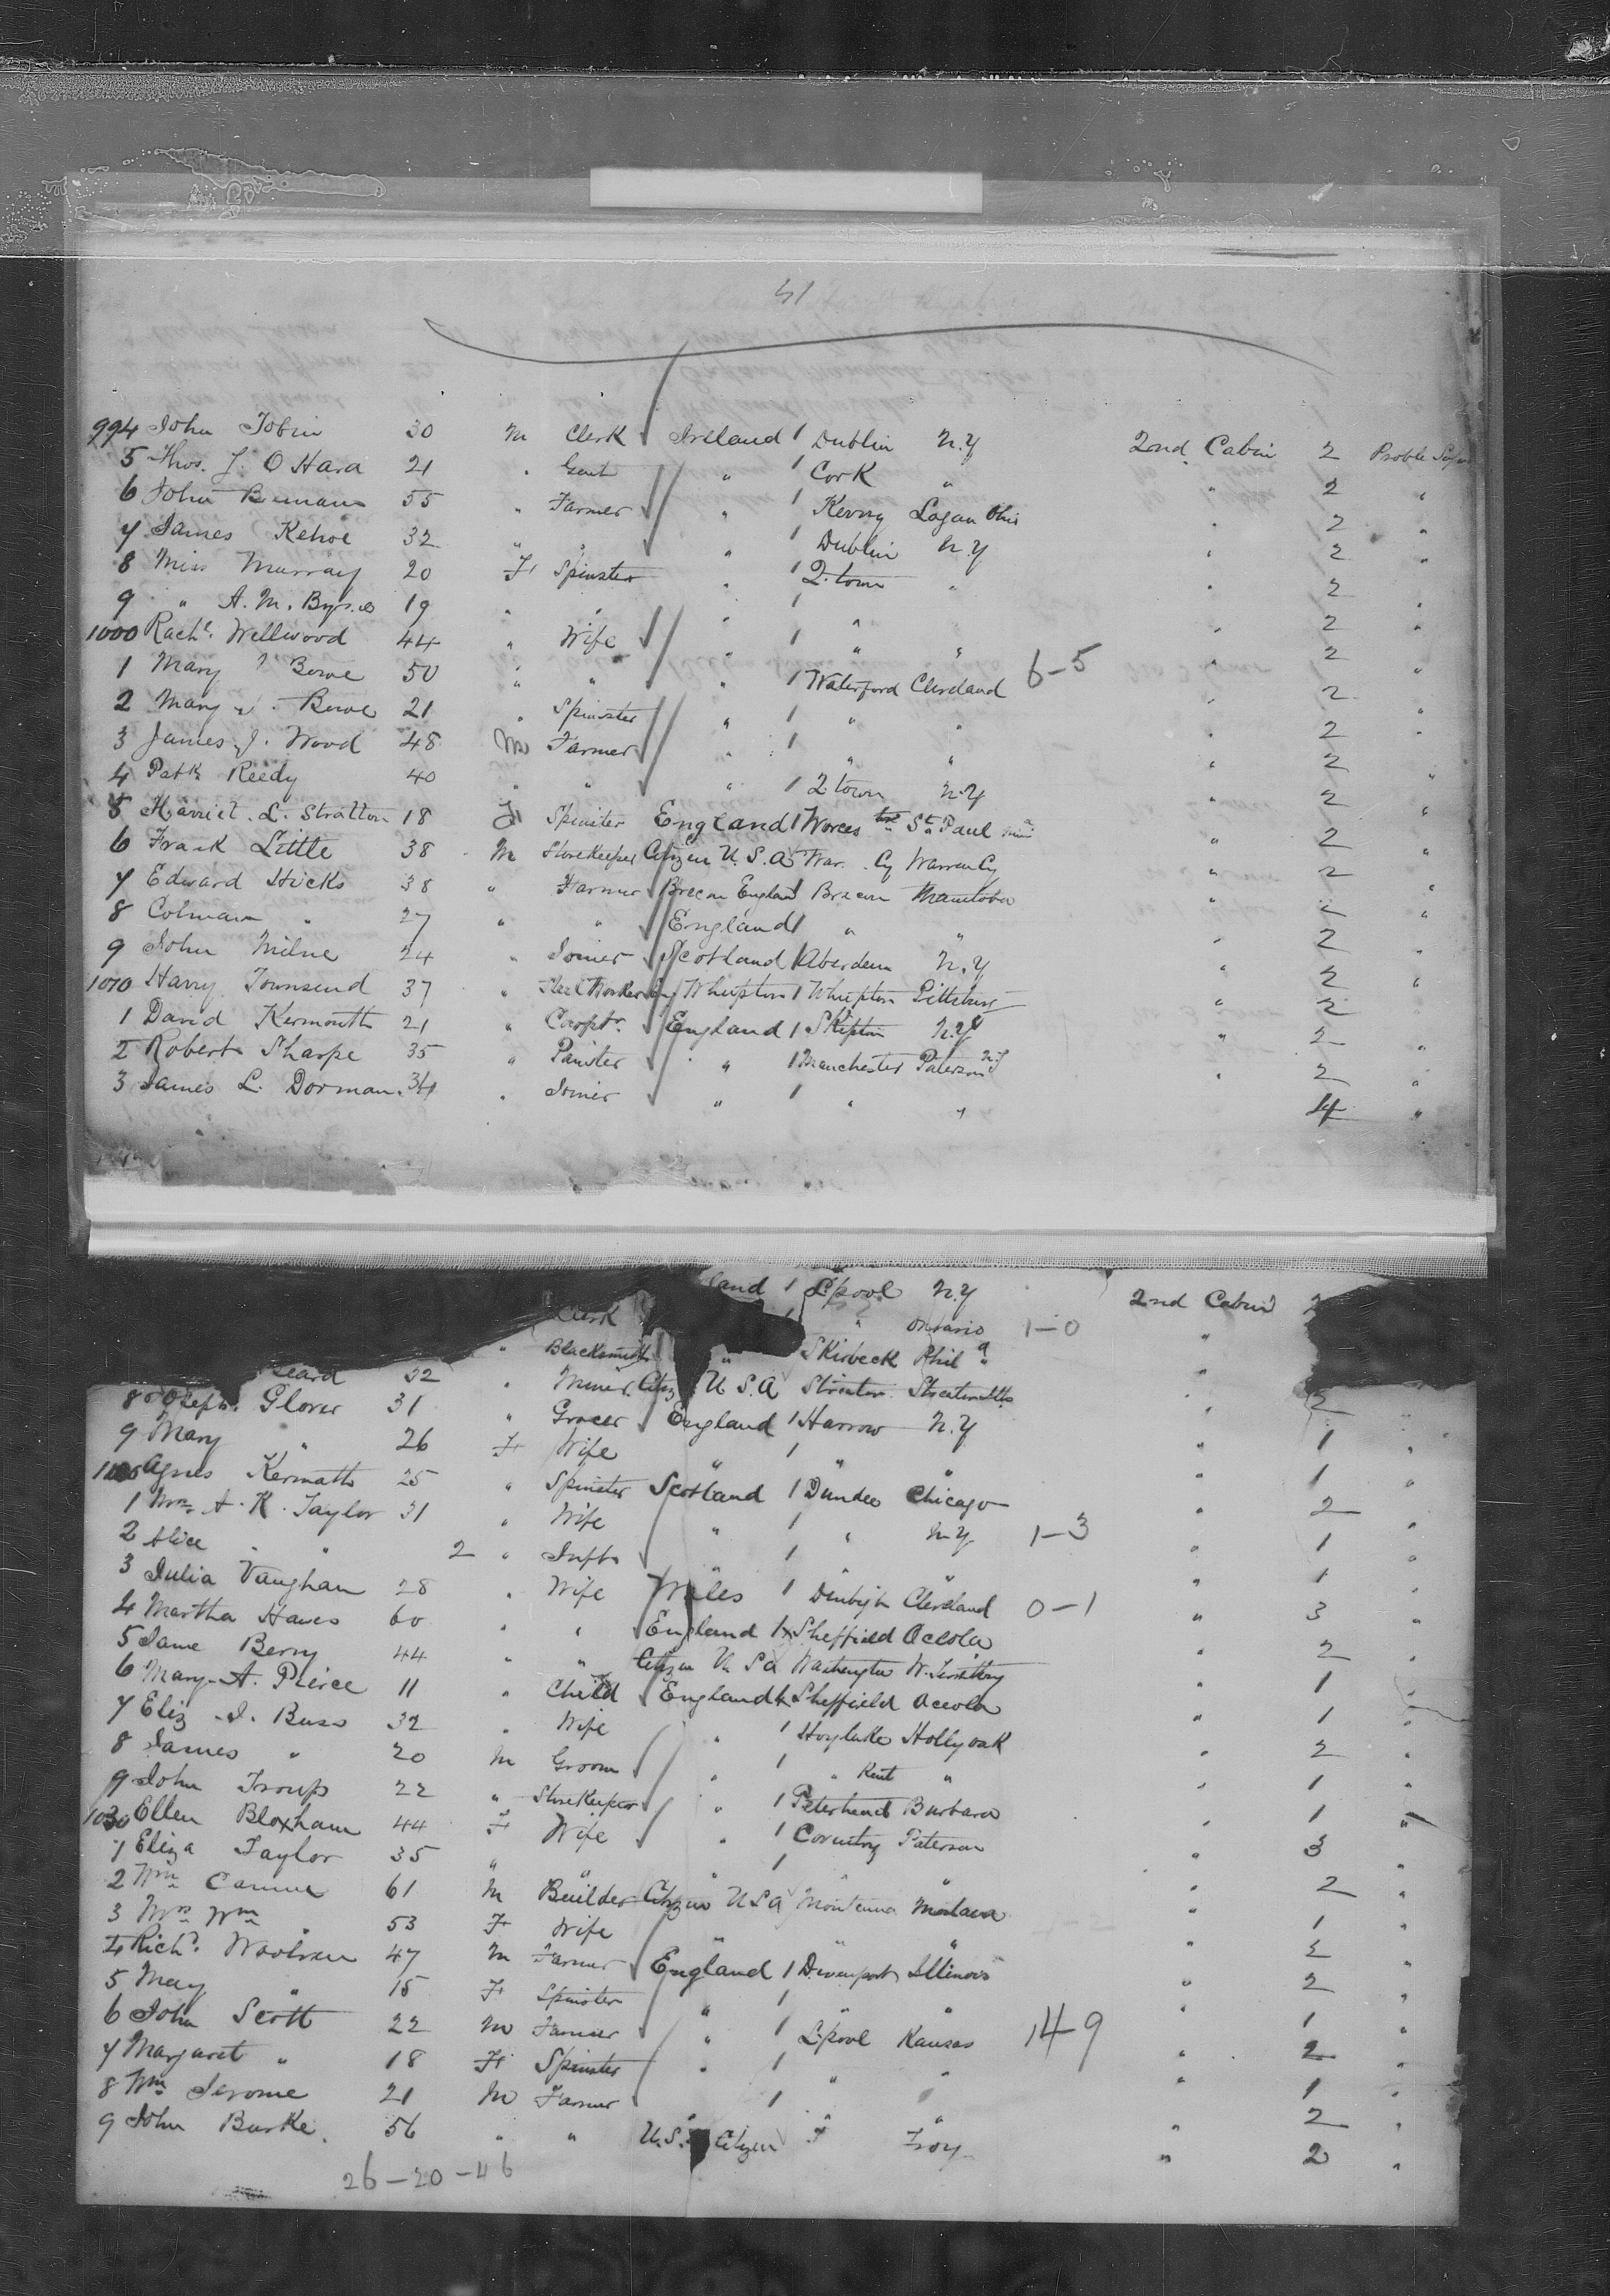 41
994 John Tobin 30 M Clerk Ireland 1 Dublin N.Y 2nd Cabin 2 Proble
5 Thos. J. O Hara 21 " Gent " 1 Cork " " 2 "
6 John 55 " Farmer " 1 Kerry Logan Ohio " 2 "
7 James Kehoe 32 " " " 1 Dublin N.Y " 2 "
8 Miss Murray 20 F Spinster " 1 Q.town " " 2 "
9 " A. M. 19 " " " 1 " " " 2 "
1000 Rachl. Wellwood 44 " Wife " 1 " " " 2 "
1 Mary Bowe 50 " " " 1 Waterford Cleveland 6-5 " 2 "
2 Mary J. Bowe 21 " Spinster " 1 " " " 2 "
3 James J. Wood 48 M Farmer " 1 " " " 2 "
4 Patk Reedy 40 " " " 1 Q.town N.Y " 2 "
5 Harriet. L. Stratton 18 F Spinster England 1 Worces St Paul " 2 "
6 Frank Little 38 M StoreKeeper Citizen U.S.A War. Cy Warren Cy " 2 "
7 Edward Hicks 38 " Farmer Brecon England 1 Brecon Manitoba " 2 "
8 Colman " 27 " " England 1 " " " 2 "
9 John Milne 24 " Joiner Scotland 1 Aberdeen N.Y " 2 "
1010 Harry Townsend 37 " 1 Pittsburg " 2 "
1 David Kermath 21 " Carptr. England 1 Skipton N.Y " 2 "
2 Robert Sharpe 35 " Painter " 1 Manchester Paterson NJ " 2 "
3 James L. Dorman. 34 " Joiner " 1 " " 4 "
land 1 L'pool N.Y 2nd Cabin 2
Clerk " Ontario 1-0 "
" Blacksmith " Skirbeck Phila "
32 " Miner. Citiz U.S.A Streator " 2
8 Joseph. Glover 31 " Grocer England 1 Harrow N.Y " 1 "
9 Mary " 26 F Wife " 1 " " " 1 "
Agnes Kermath 25 " Spinster Scotland 1 Dundee Chicago " 2 "
1 Mrs A. K. Taylor 31 " Wife " 1 " N.Y 1-3 " 1 "
2 Alice " " 2 " Inft " 1 " " " 1 "
3 Julia Vaughan 28 " Wife Wales 1 Denbigh Cleveland 0-1 " 3 "
4 Martha Hawes 60 " " England 1 Sheffield Oceola " 2 "
5 Jane Berry 44 " " Citizen U. S a Washington W. Territory " 1 "
6 Mary A. Pierce 11 " Child England 1 Sheffield Oceola " 1 "
7 Eliz J. Buss 32 " Wife " 1 Hoylake Hollyoak " 2 "
8 James " 20 M Groom " 1 " Kent " " 1 "
9 John Troup 22 " StoreKeeper " 1 Peterhead Burbara " 1 "
1030 Ellen Bloxham 44 F Wife " 1 Coventry Paterson " 3 "
1 Eliza Taylor 35 " " " 1 " " " 2 "
2 Wm 61 M Builder Citizen U S A Montana Montana " 1 "
3 Mrs Wm " 53 F Wife " " " " 2 "
4 Richd. 47 M Farmer England 1 Devenport Illinois " 2 "
5 May " 15 F Spinster " 1 " " " 1 "
6 John Scott 22 M Farmer " 1 L'pool Kansas 14-9 " 2 "
7 Margaret " 18 F Spinster " 1 " " " 1 "
8 Wm Jerome 21 M Farmer " 1 " " " 2 "
9 John Burke. 56 " " U.S. Citizen " Troy " 2 "
26-20-46